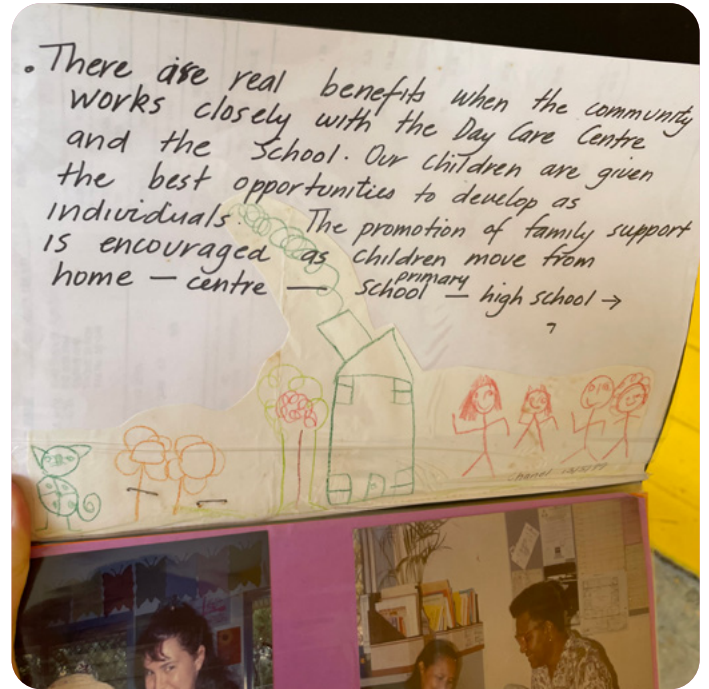 • There are real benefits when the community
works closely with the Day Care Centre
and the School. Our children are given
the best opportunities to develop as
individuals. The promotion of family support
is encouraged as children move from
home — centre — school primary — high school →
Chanel